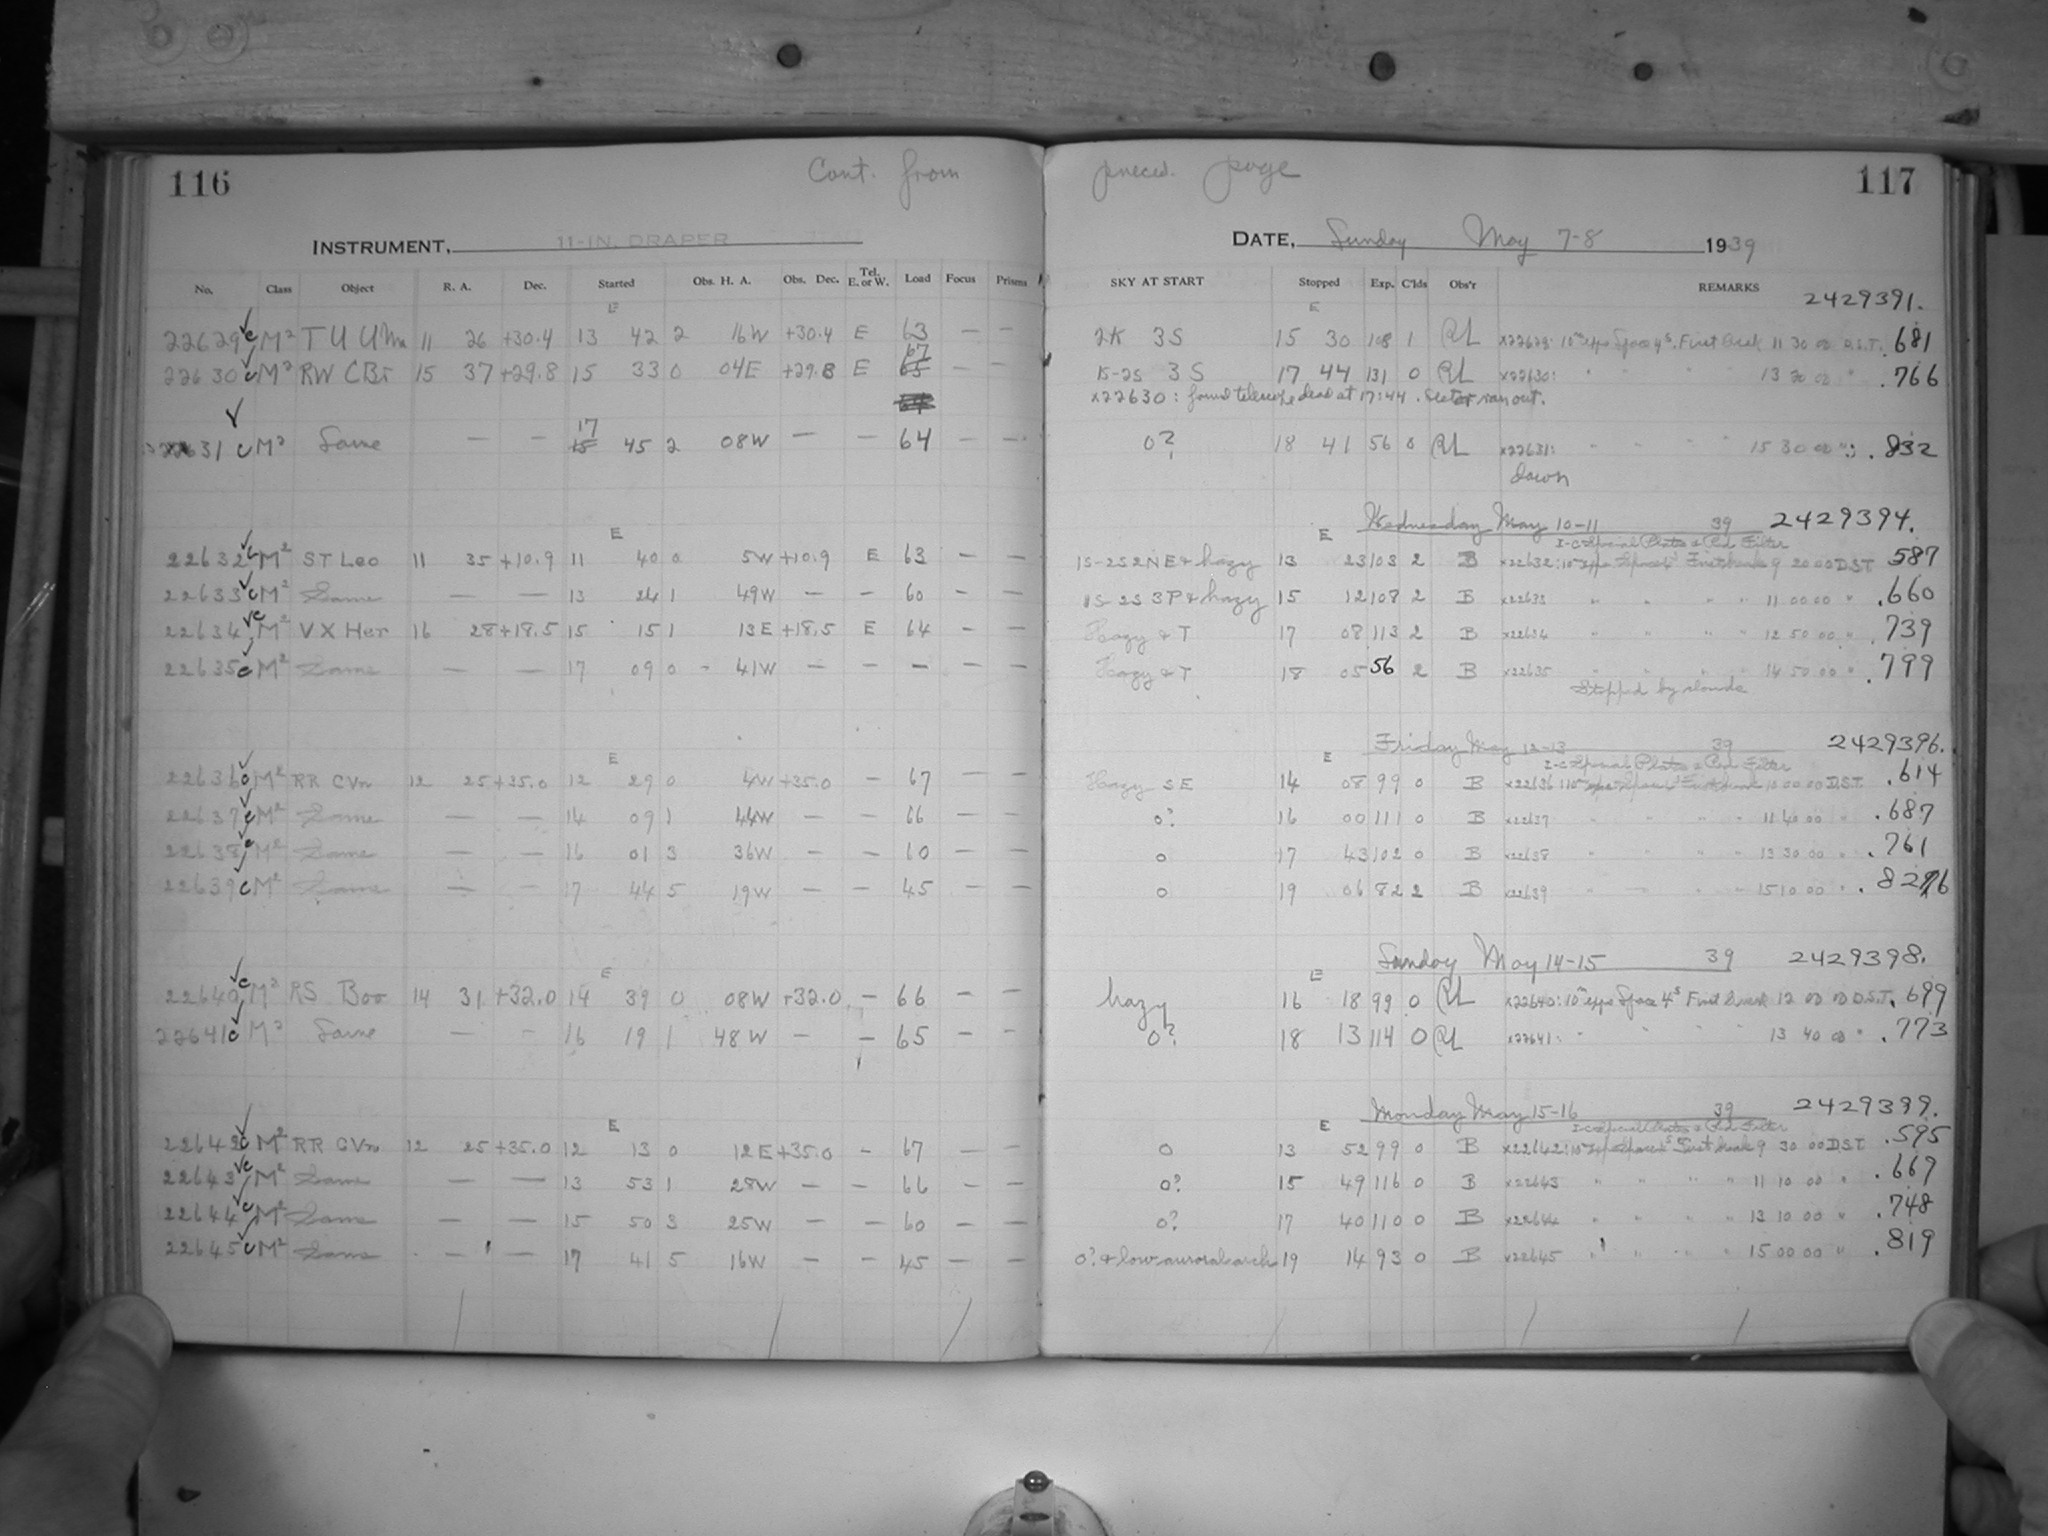 116
Cont. from
INSTRUMENT, 11-IN. DRAPER
No. Class Object R. A. Dec. Started Obs. H. A. Obs. Dec. Tel. E. or W. Load Focus Prisms
E
22629 c M² T U UMa 11 26 +30.4 13 42 2 16W +30.4 E 63 — —
22630 c M² RW CBr 15 37 +29.8 15 33 0 04E +29.8 E 67 65 — —
22631 c M² Same — — 17 15 45 2 08W — — 64 — —
E
22632 c M² ST Leo 11 35 +10.9 11 40 0 5W +10.9 E 63 — —
22633 c M² Same — — 13 24 1 49W — — 60 — —
22634 c M² V X Her 16 28 +18.5 15 15 1 13E +18.5 E 64 — —
22635 c M² Same — — 17 09 0 - 41W — — — — —
E
22636 c M² RR CVn 12 25 +35.0 12 29 0 4W +35.0 — 67 — —
22637 c M² Same — — 14 09 1 44W — — 66 — —
22638 c M² Same — — 16 01 3 36W — — 60 — —
22639 c M² Same — — 17 44 5 19W — — 45 — —
E
22640 c M² RS Boo 14 31 +32.0 14 39 0 08W +32.0 — 66 — —
22641 c M² Same — — 16 19 1 48W — — 65 — —
E
22642 c M² RR CVn 12 25 +35.0 12 13 0 12E +35.0 — 67 — —
22643 c M² Same — — 13 53 1 28W — — 66 — —
22644 c M² Same — — 15 50 3 25W — — 60 — —
22645 c M² Same — — 17 41 5 16W — — 45 — —
precd. page
117
DATE, Sunday May 7-8 1939
SKY AT START Stopped Exp. C'lds Obs'r REMARKS
E 2429391.
2K 3S 15 30 108 1 RL x22629: 10 exps Space 4ˢ. First break 11 30 00 D.S.T. .681
1S-2S 3S 17 44 131 0 RL x22630: " " " " 13 20 00 " .766
x22630: found telescope dead at 17:44. Sector ran out.
0? 18 41 56 0 RL x22631: " " " " 15 30 00 " .832
dawn
E Wednesday May 10-11 39 2429394.
I-C Special Plates & Red Filter
1S-2S 2NE & hazy 13 23 103 2 B x22632: 10 exps Space First break 9 20 00 DST .587
1S-2S 3P & hazy 15 12 108 2 B x22633 " " " " 11 00 00 " .660
Hazy & T 17 08 113 2 B x22634 " " " " 12 50 00 " .739
Hazy & T 18 05 56 2 B x22635 " " " " 14 50 00 " .799
Stopped by clouds
E Friday May 12-13 39 2429396.
I-C Special Plates & Red Filter
Hazy SE 14 08 99 0 B x22636: 10 exps Space First break 10 00 00 D.S.T. .614
0? 16 00 111 0 B x22637 " " " " 11 40 00 " .687
0 17 43 102 0 B x22638 " " " " 13 30 00 " .761
0 19 06 82 2 B x22639 " " " " 15 10 00 " .826
E Sunday May 14-15 39 2429398.
hazy 16 18 99 0 RL x22640: 10 exps Space 4ˢ First break 12 00 00 D.S.T. .699
0? 18 13 114 0 RL x22641: " " " " 13 40 00 " .773
E Monday May 15-16 39 2429399.
I-C Special Plates & Red Filter
0 13 52 99 0 B x22642: 10 exps Space First break 9 30 00 DST .595
0? 15 49 116 0 B x22643 " " " " 11 10 00 " .669
0? 17 40 110 0 B x22644 " " " " 13 10 00 " .748
0? & low auroral arch 19 14 93 0 B x22645 " " " " 15 00 00 " .819